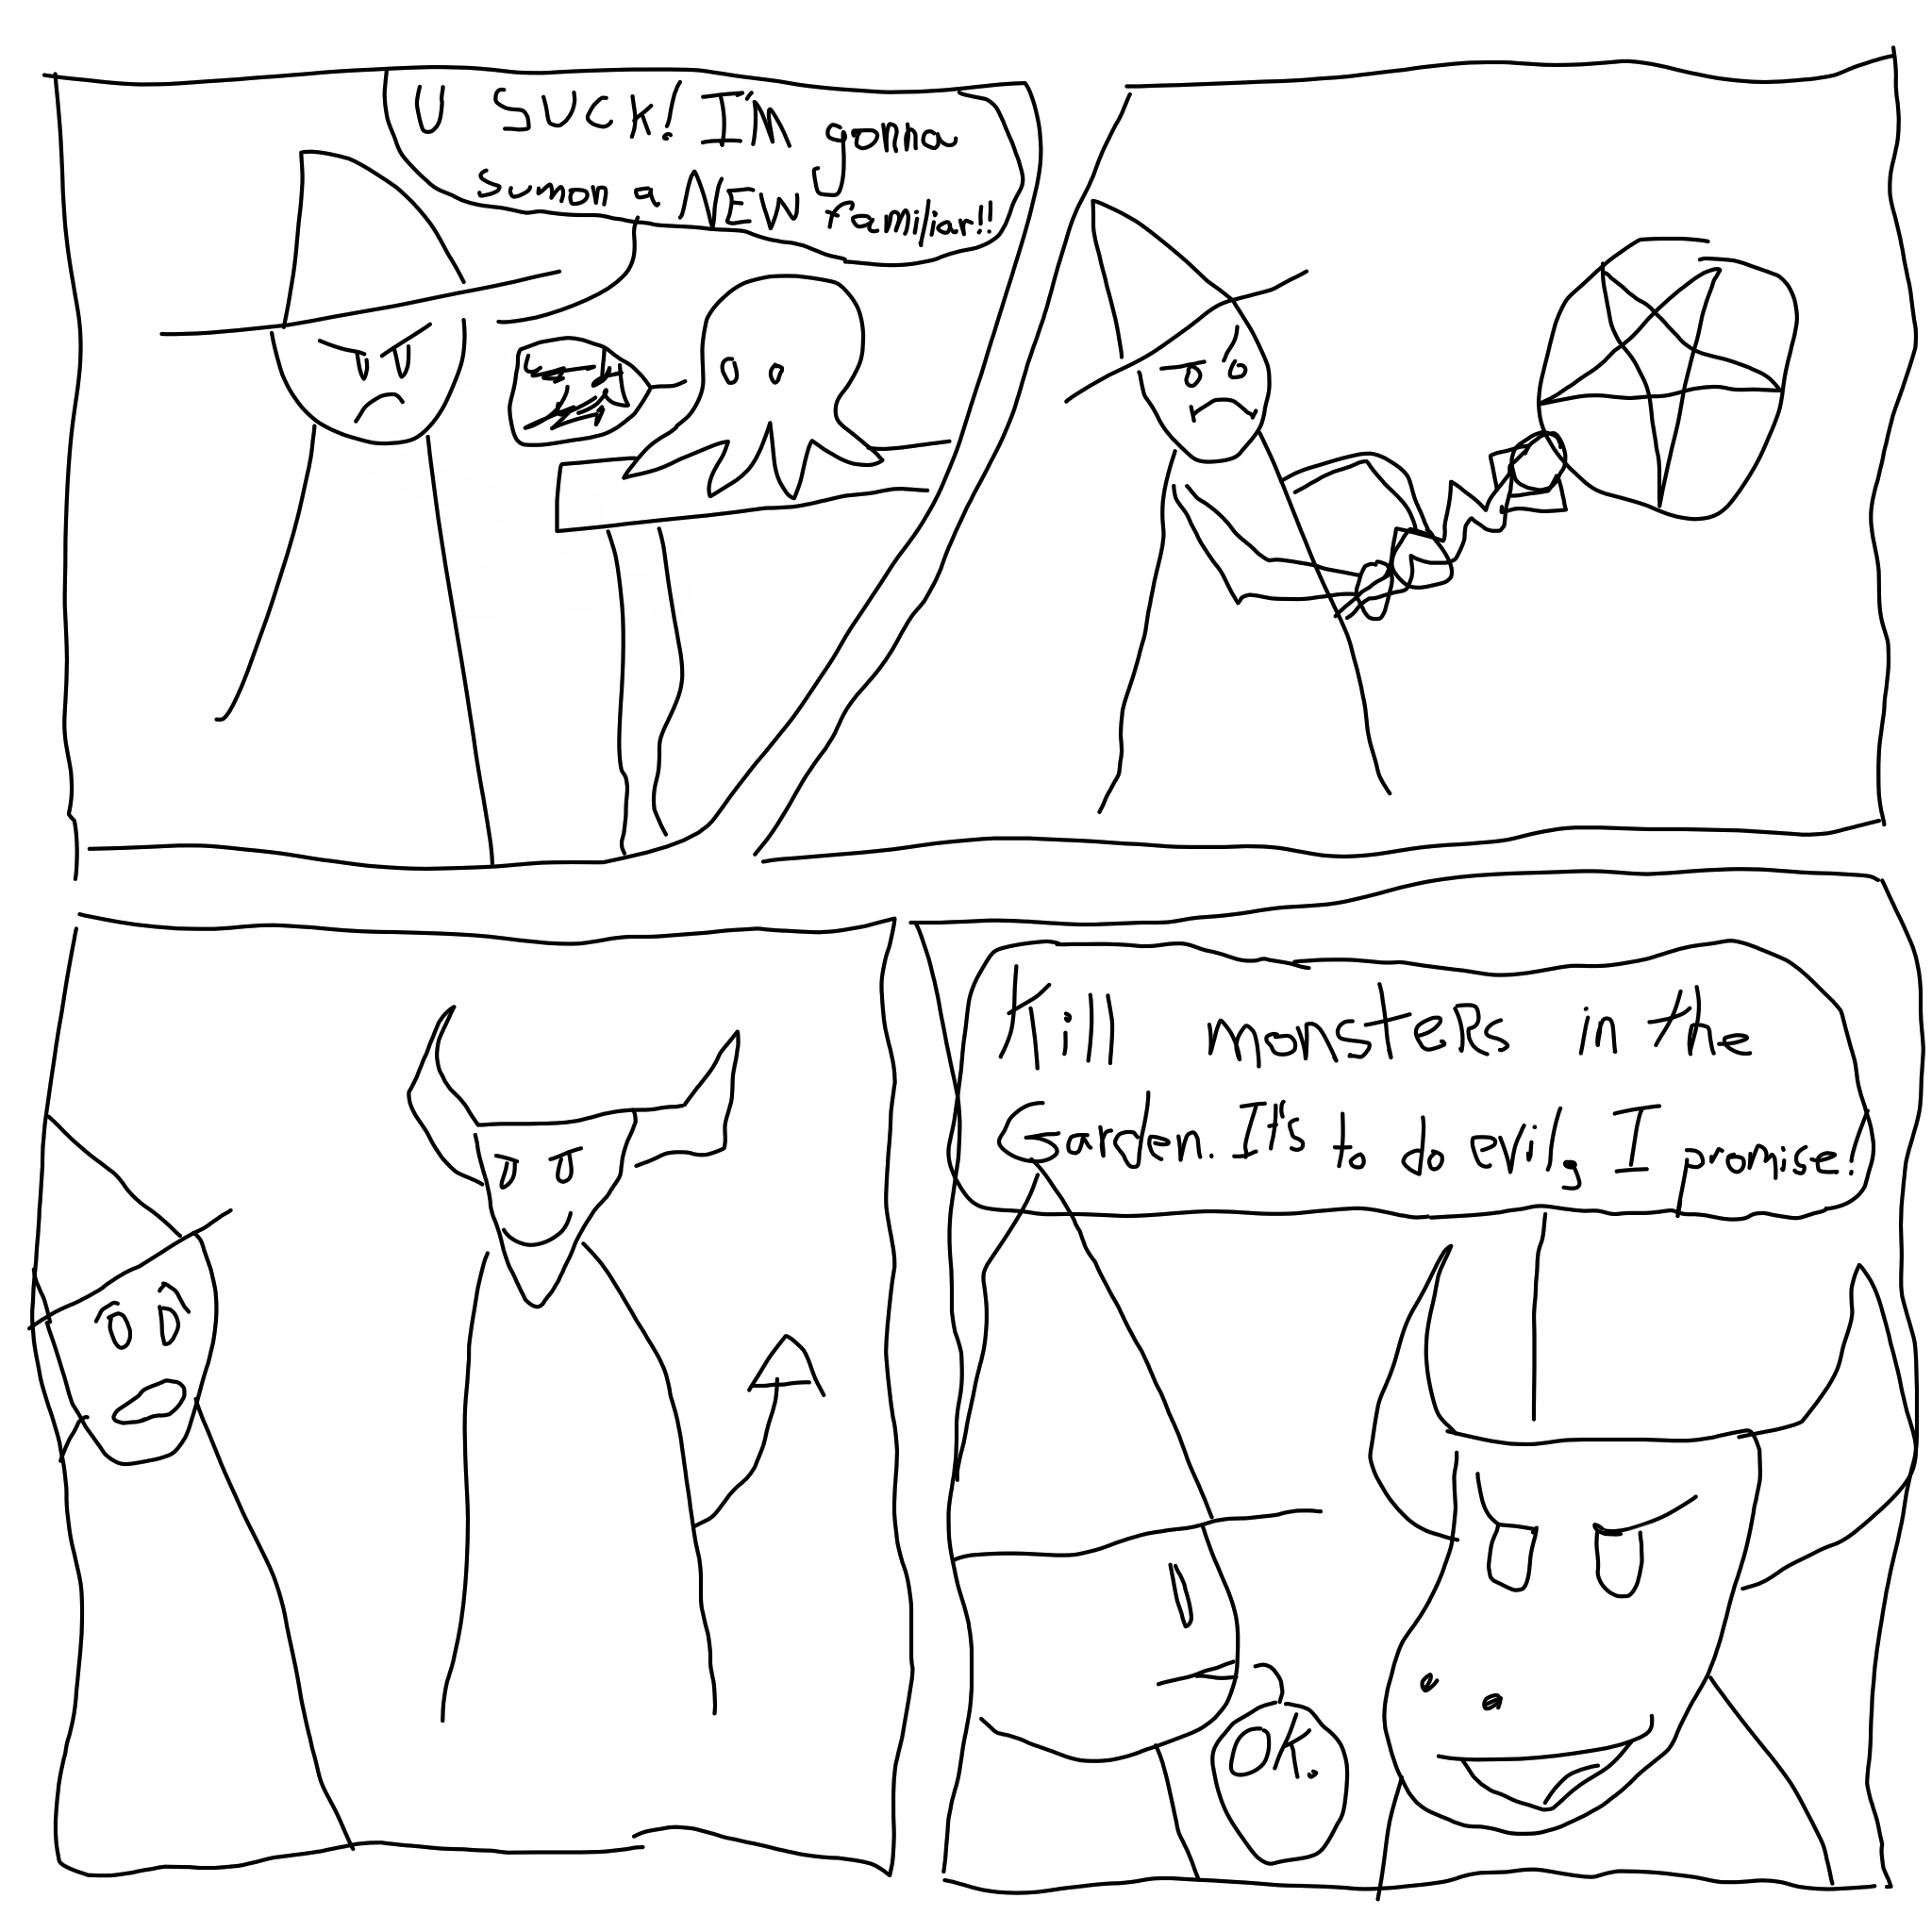 U SUCK! I'M gonna
Summon a NEW familiar!!
Kill monsteRs in the
Garden. It's to do evil, I promise!
OK.